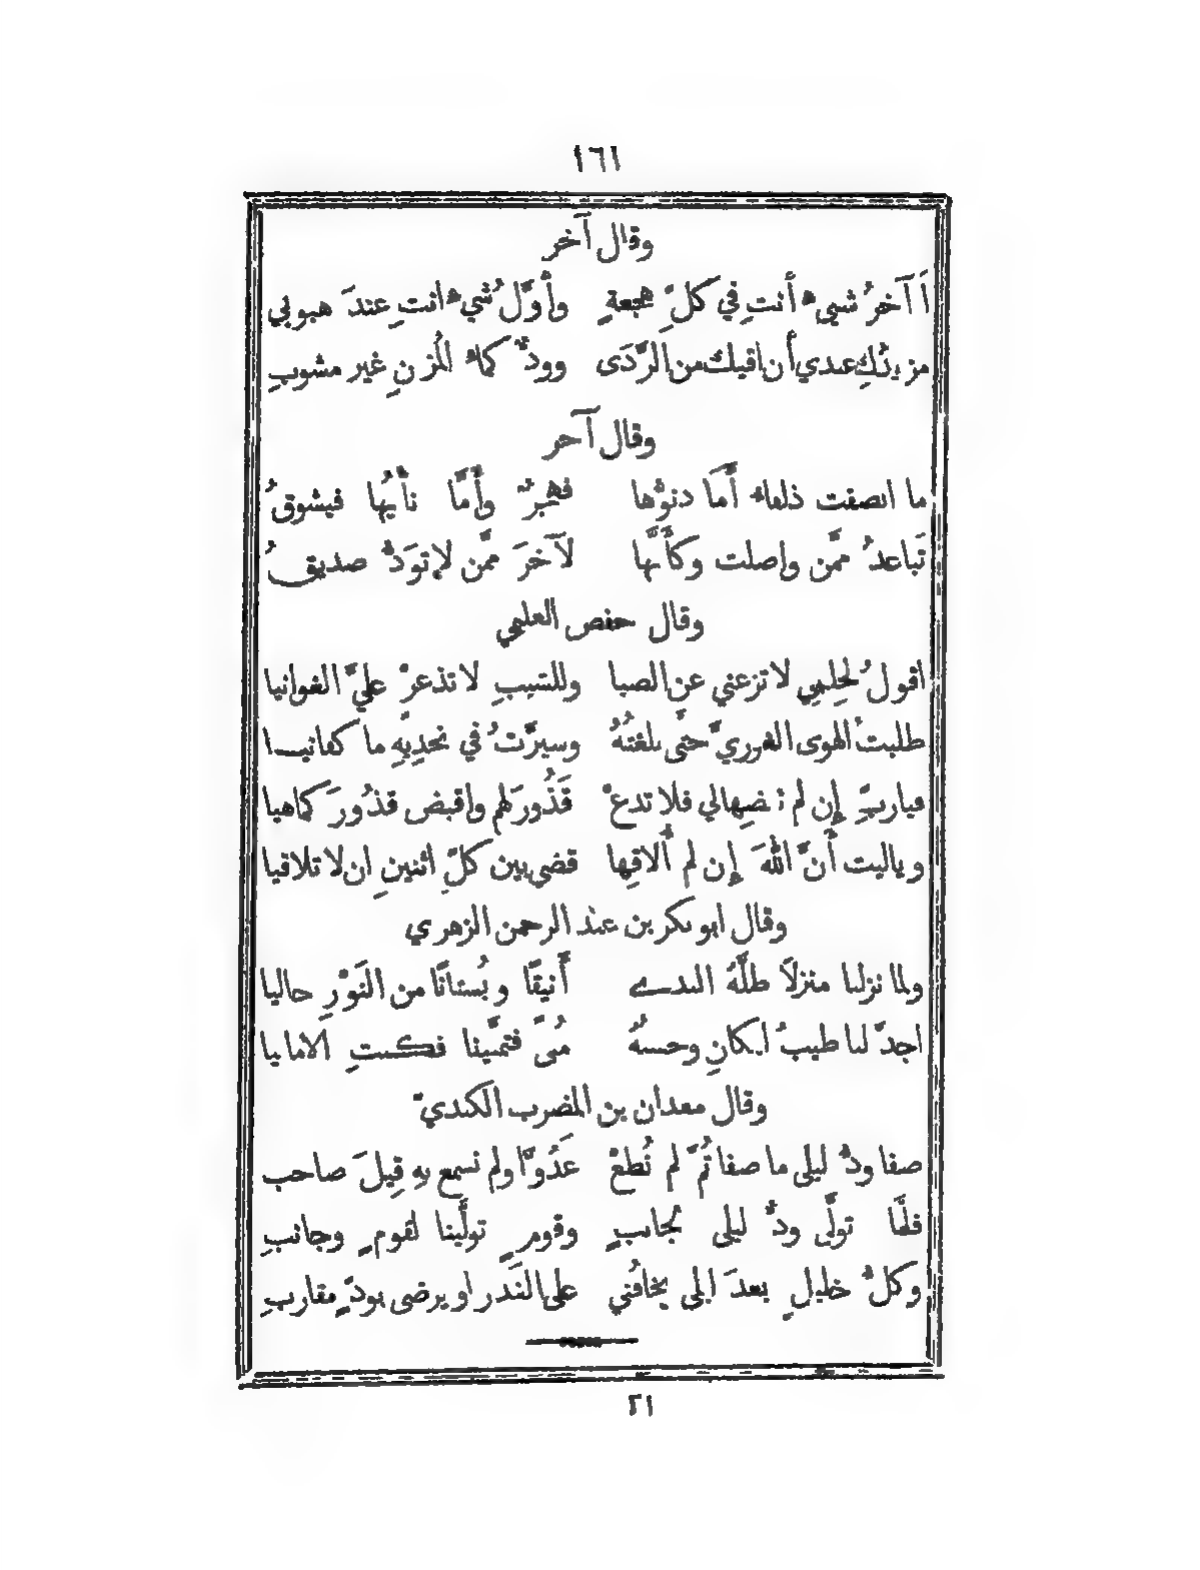 ١٦١
وقال آخر
أَ آخرُ شيءٍ أَنتِ في كلِّ هجعةٍ وأَوَّلُ شيءٍ انتِ عندَ هبوبي
مزيدُكِ عندي أَن اقيك من الرَّدَى وودٌّ كماءِ المُزنِ غير مشوبِ
وقال آخر
ما انصفت ذلفاءُ أَمَّا دنوُّها فهجرٌ وأَمَّا نأْيُها فيشوقُ
تَباعدُ ممَّن واصلت وكأَنَّها لآخرَ ممَّن لا توَدُّ صديقُ
وقال حفص العليمي
اقولُ لحِلمِي لا تزعني عن الصبا وللشيبِ لا تذعرْ عليَّ الغوانيا
طلبتُ الهوى الغوريَّ حتَّى بلغتُهُ وسيرَّتُ في نجدِيِّهِ ما كفانيـا
فياربِّ إِن لم تقضِها لي فلا تدعْ قَذُورَ لهم واقبض قذُورَ كما هيا
وياليت أَنَّ اللهَ إِن لم أُلاقِها قضى بين كلِّ اثنينِ ان لا تلاقيا
وقال ابو بكر بن عبد الرحمن الزهري
ولما نزلنا منزلاً طلَّهُ الندے أَنيقًا وبُستانًا من النَوْرِ حاليا
اجدَّ لنا طيبُ المكانِ وحسنُهُ مُنىً فتمنَّينا فكنتِ الامانيا
وقال معدان بن المضرب الكنديّ
صفا ودُّ ليلى ما صفا ثُمَّ لم نُطعْ عَدُوًّا ولم نسمع بهِ قِيلَ صاحب
فلمَّا تولَّى ودُّ ليلى لجانبٍ وقومٍ تولَّينا لقومٍ وجانبِ
وكلُّ خليلٍ بعدَ ليلى يخافُني على الغَدر او يرضى بودٍّ مقاربِ
٢١